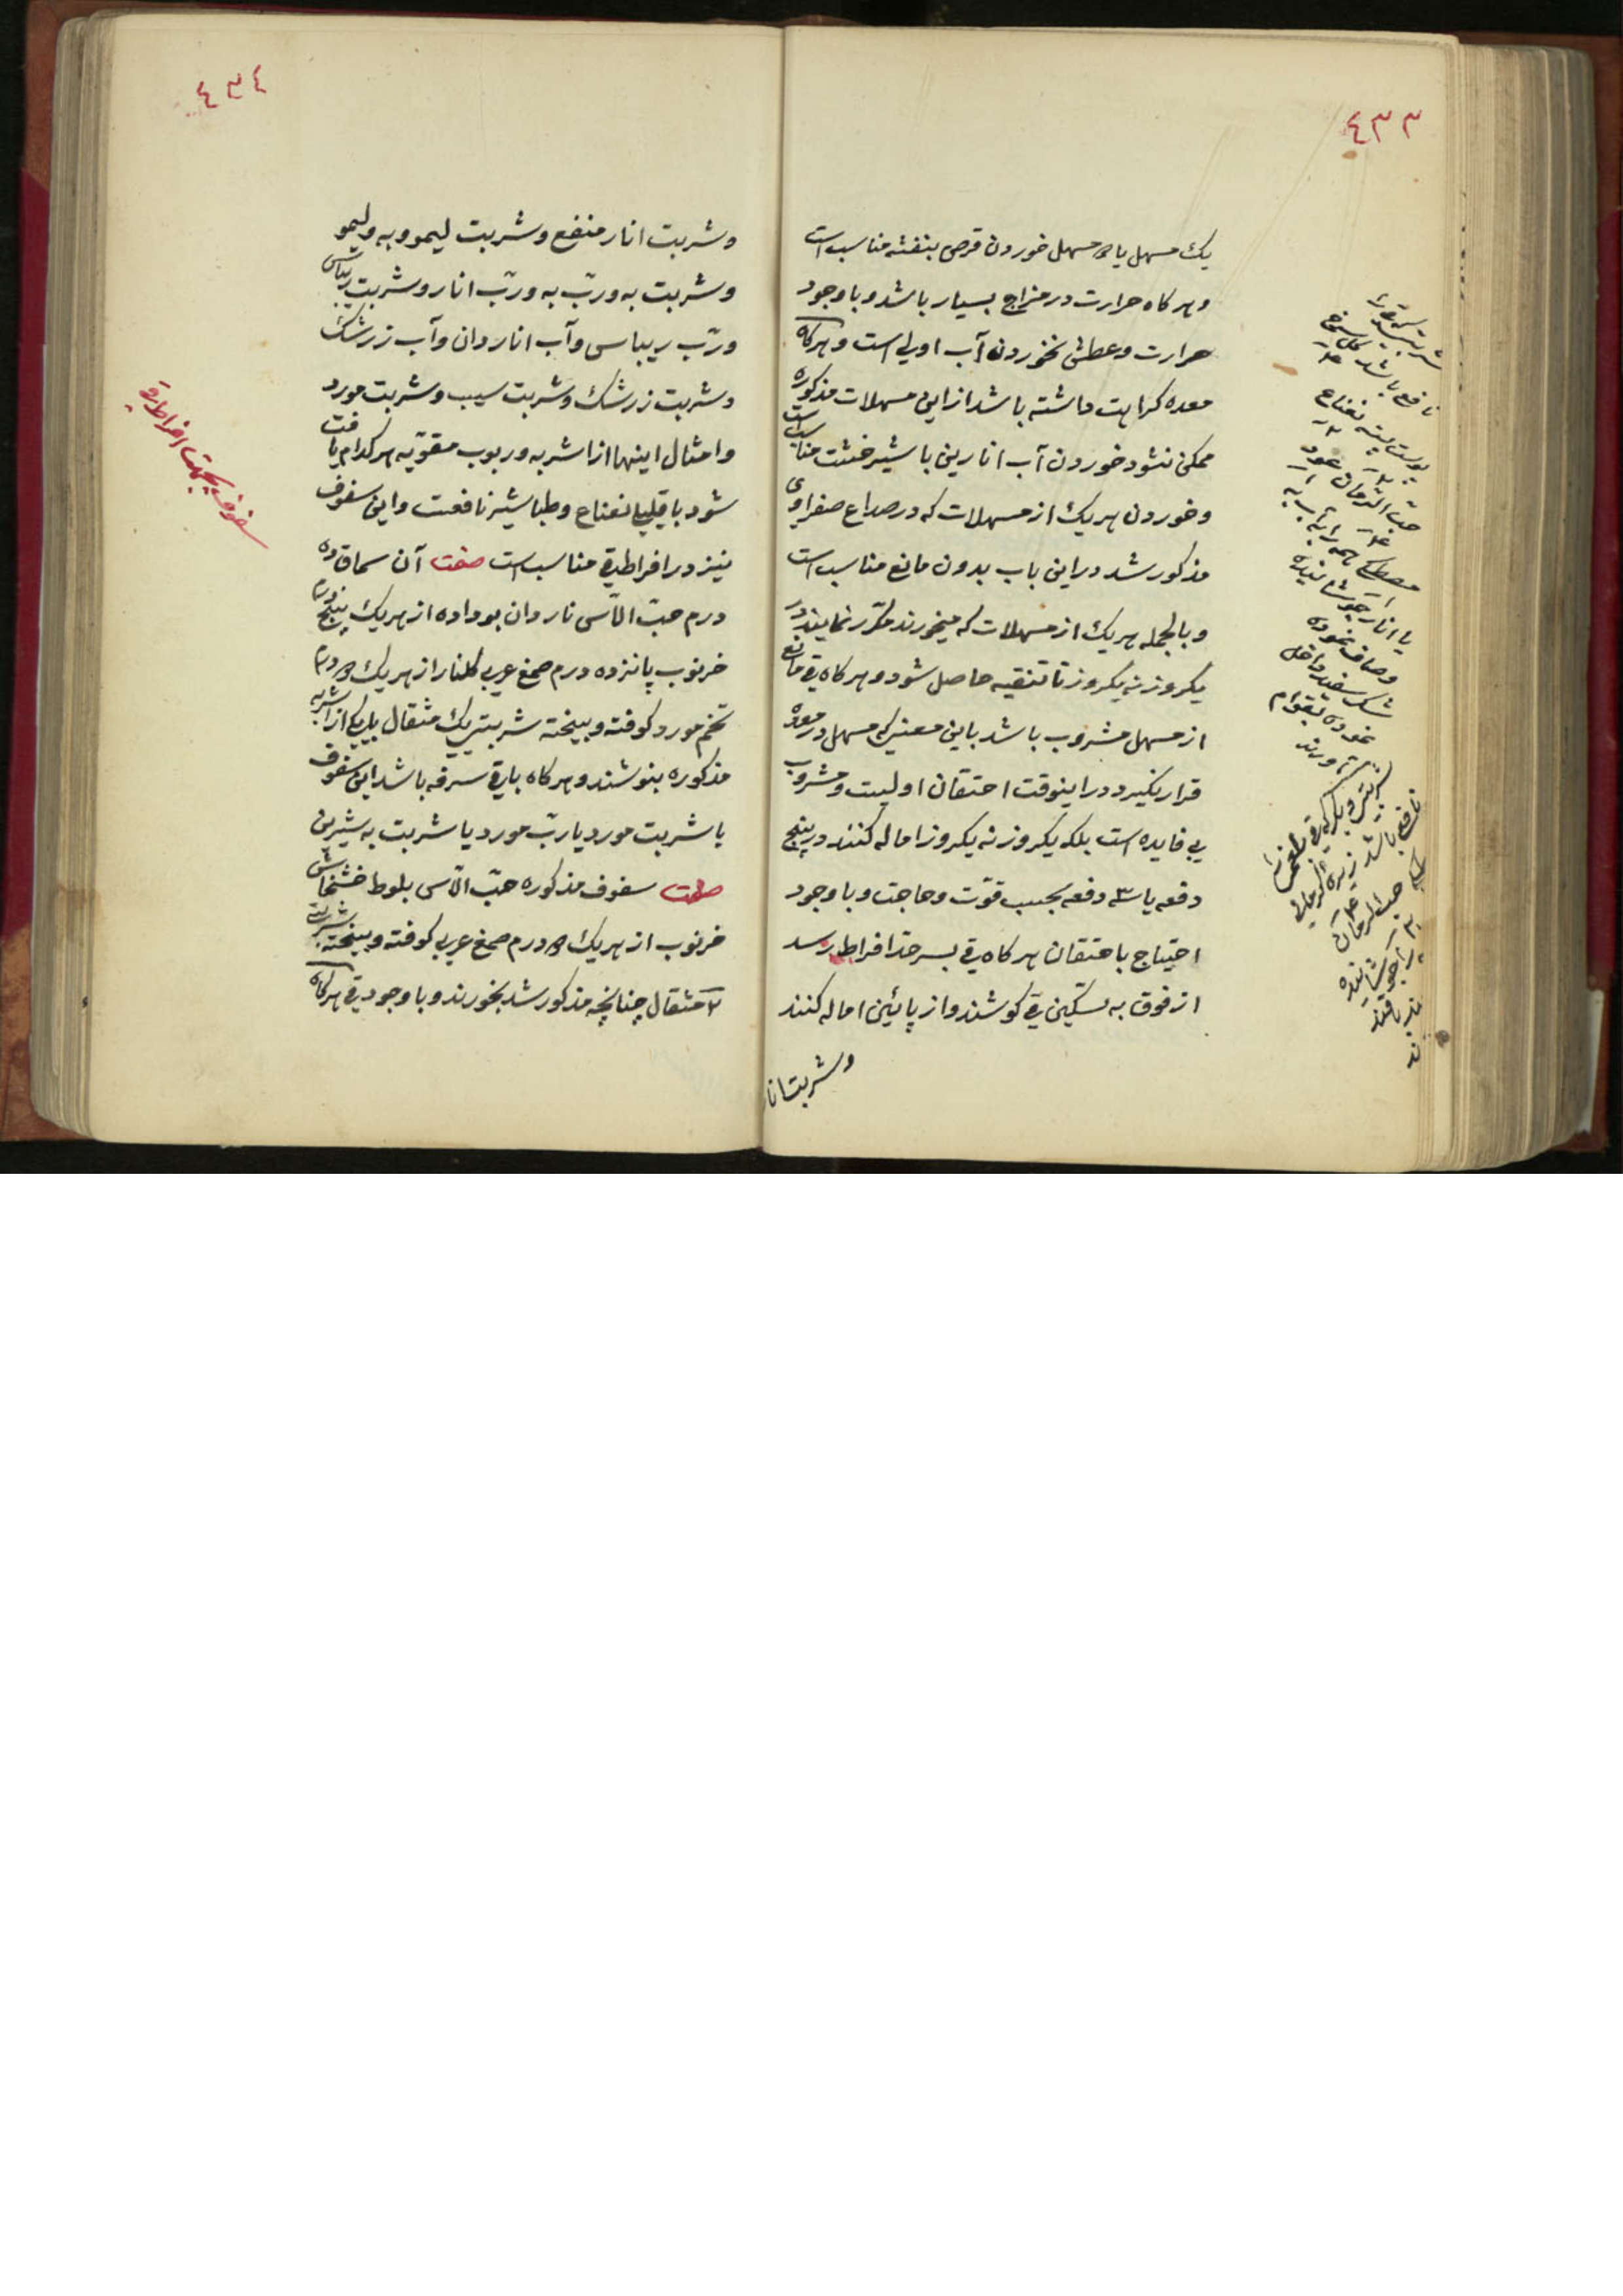 ٤٣٣
یک مسهل یا دو مسهل خوردن قرص بنفشه مناسب است
و هر کاه حرارت در مزاج بسیار باشد و با وجود
حرارت و عطش نخوردن آب اولی است و هر کاه
معده کراهت داشته باشد از این مسهلات مذکوره
ممکن نشود خوردن آب انارین با شیرخشت مناسب است
و خوردن هر یک از مسهلات که در صداع صفراوی
مذکور شد در این باب بدون مانع مناسب است
و بالجمله هر یک از مسهلات که میخورند مکرّر نمایند در
یکروز نه یکروز تا تنقیه حاصل شود و هر کاه قی مانع
از مسهل مشروب باشد باین معنی که مسهل در معده
قرار نکیرد در اینوقت احتقان اولیست و مشروب
بی فایده است بلکه یکروز نه یکروز اماله کنند در پنج
دفعه یا سه دفعه بحسب قوّت و حاجت و با وجود
احتیاج باحتقان هر کاه قی بسر حدّ افراط رسد
از فوق به تسکین قی کوشند و از پائین اماله کنند
و شربت انا
شربتی که قی را
نافع باشد کل سرخ
پوست پسته نعناع
حبّ الرمان عود
مصطکی همه را بآب به
یا انار جوشانیده
و صاف نموده
شکر سفید داخل
نموده بقوام
آورند
٤٣٤
و شربت انار منعنع و شربت لیمو و به و لیمو
و شربت به و ربّ به و ربّ انار و شربت ریباس
و ربّ ریباس و آب اناردان و آب زرشک
و شربت زرشک و شربت سیب و شربت مورد
و امثال اینها از اشربه و ربوب مقوّیه هر کدام یافت
شود با قلیلی نعناع و طباشیر نافعست و این سفوف
نیز در افراط قی مناسب است صفت آن سماق ده
درم حبّ الآس ناردان بو داده از هر یک پنج درم
خرنوب پانزده درم صمغ عربی کلنار از هر یک دو درم
تخم مورد کوفته و بیخته شربتی یک مثقال با یکی از اشربه
مذکوره بنوشند و هر کاه با قی سرفه باشد این سفوف
با شربت مورد یا ربّ مورد یا شربت به شیرین
صفت سفوف مذکوره حبّ الآس بلوط خشخاش
خرنوب از هر یک دو درم صمغ عربی کوفته و بیخته شربت
۲ مثقال چنانچه مذکور شد بخورند و با وجود قی هر کاه
سفوف بجهت افراط قی